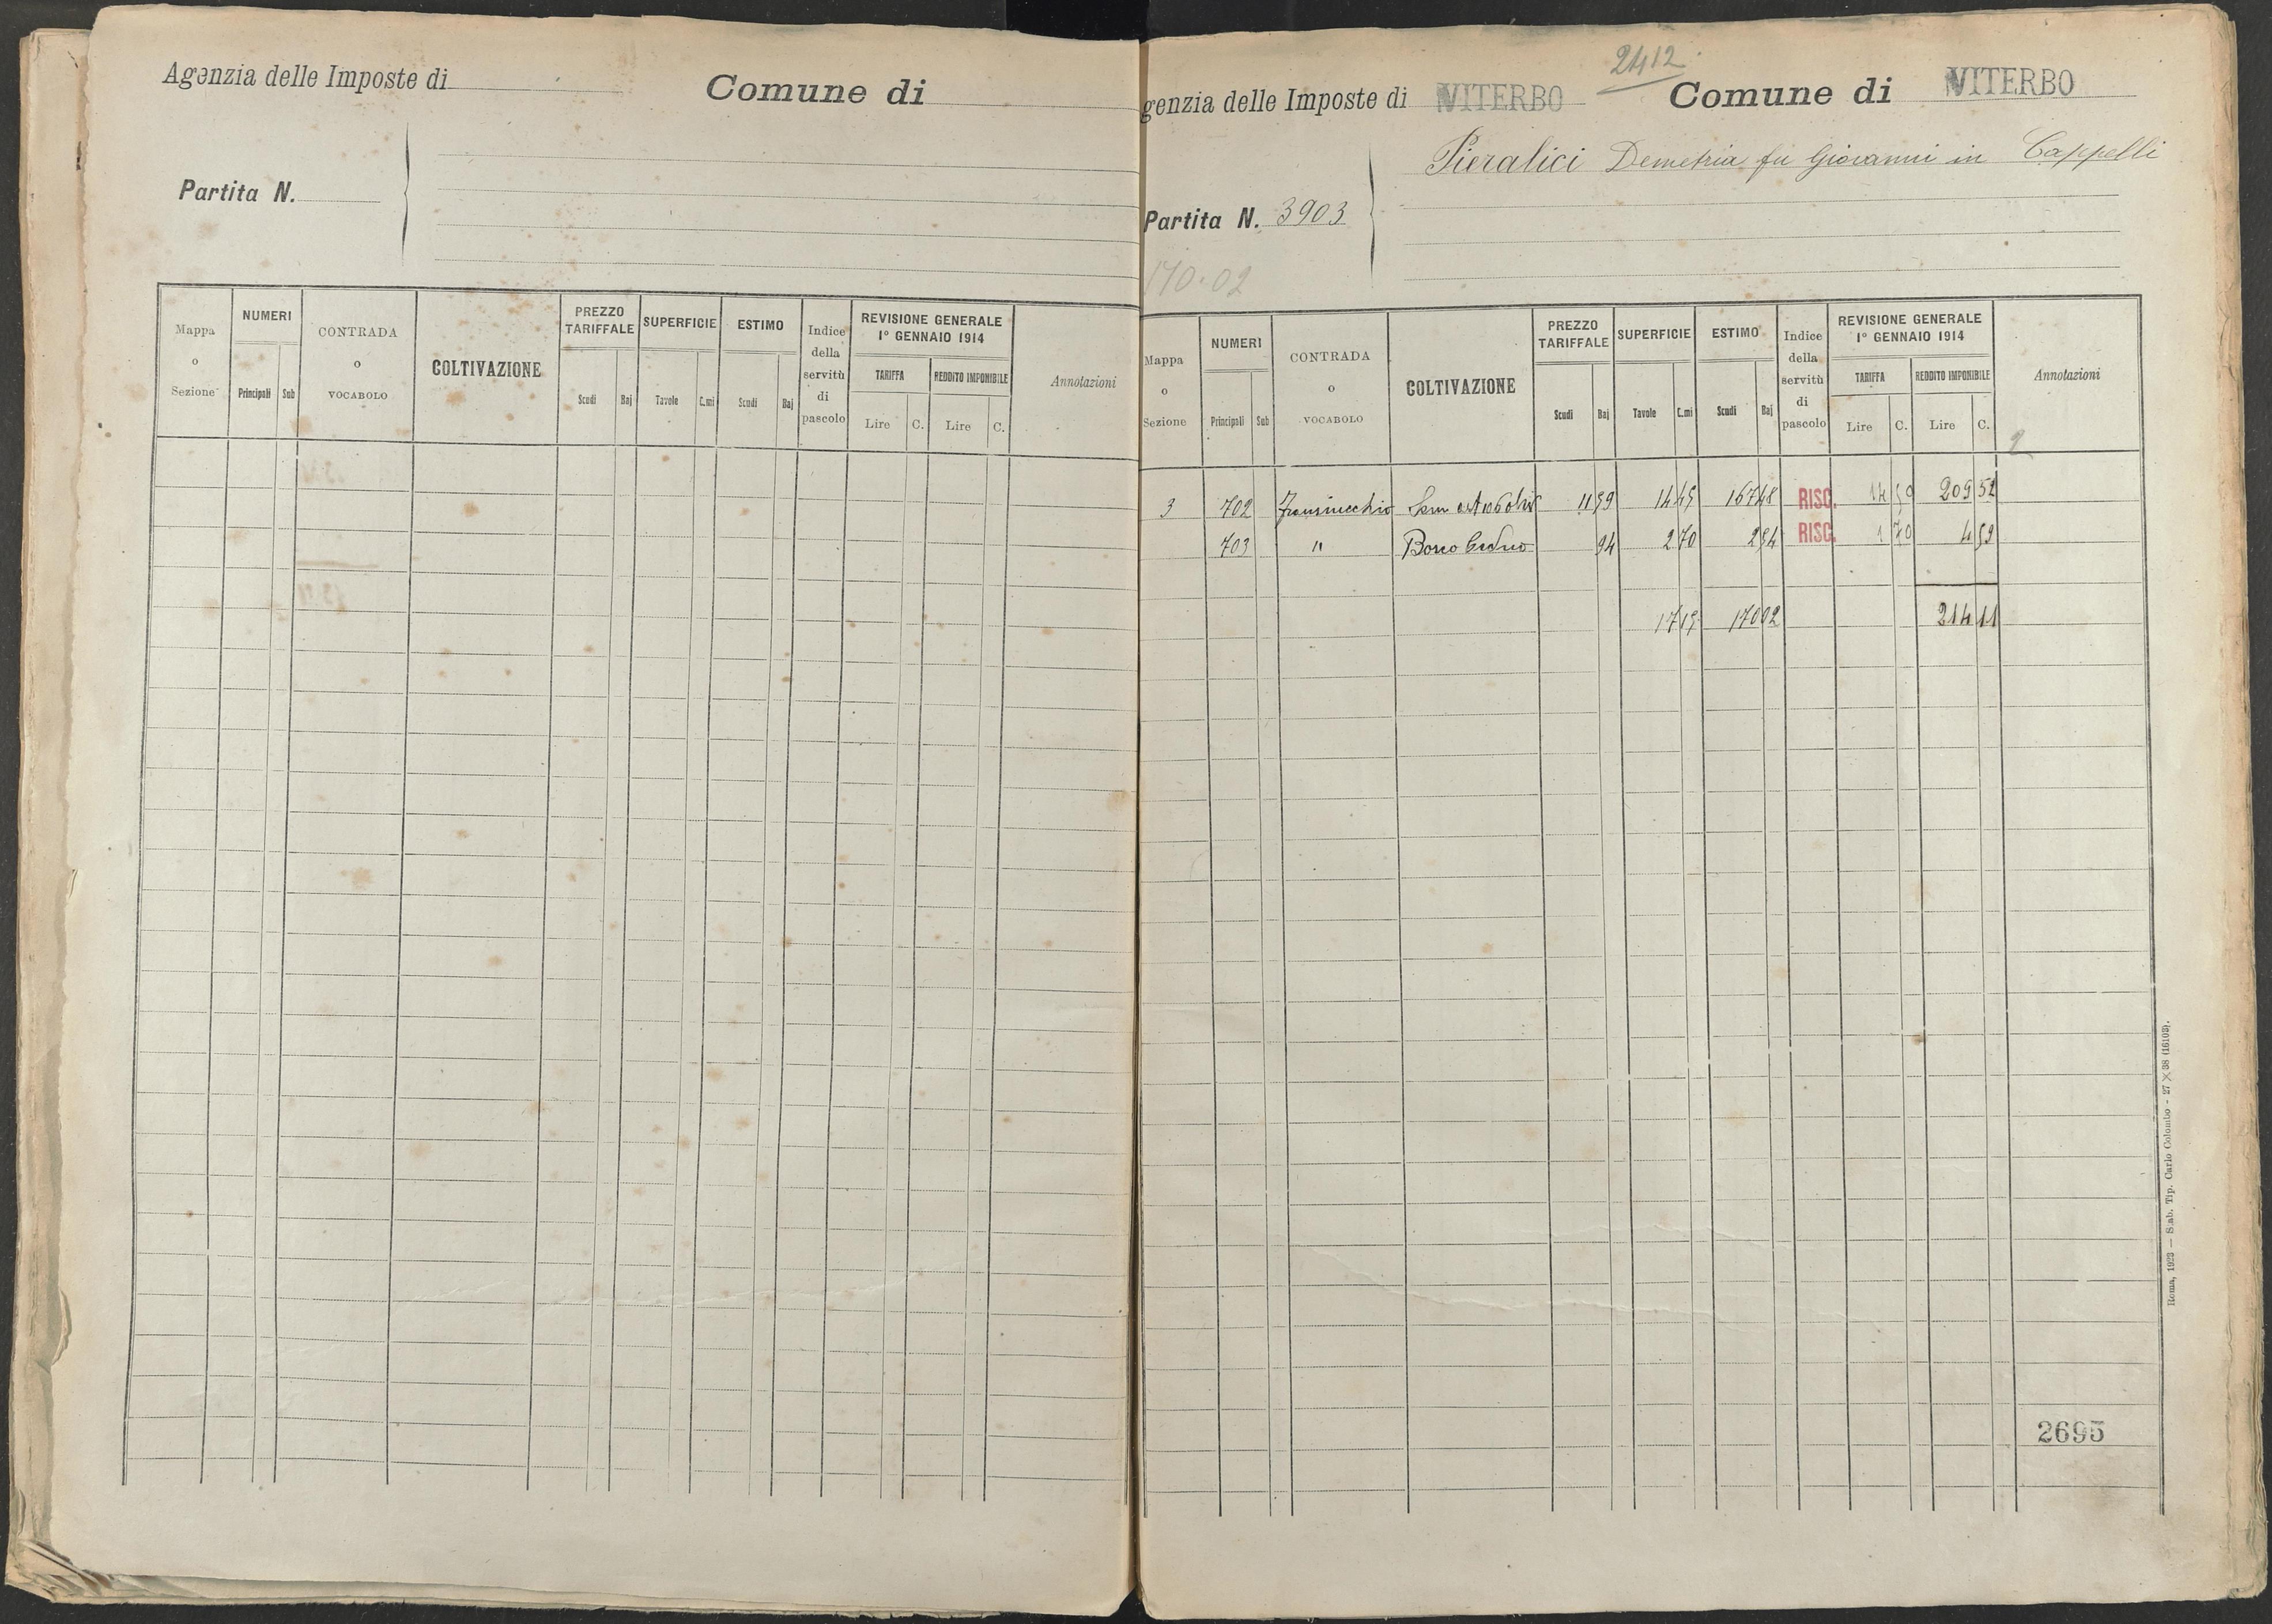 Agenzia delle Imposte di
Comune di
Partita N.
Mappa o Sezione
NUMERI
Principali
Sub
CONTRADA o VOCABOLO
COLTIVAZIONE
PREZZO TARIFFALE
Scudi
Baj
SUPERFICIE
Tavole
C.mi
ESTIMO
Scudi
Baj
Indice della servitù di pascolo
REVISIONE GENERALE
1° GENNAIO 1914
TARIFFA
Lire
C.
REDDITO IMPONIBILE
Lire
C.
Annotazioni
2412
genzia delle Imposte di VITERBO
Comune di VITERBO
Pieralici Demetria fu Giovanni in Cappelli
Partita N. 3903
170.02
Mappa o Sezione
NUMERI
Principali
Sub
CONTRADA o VOCABOLO
COLTIVAZIONE
PREZZO TARIFFALE
Scudi
Baj
SUPERFICIE
Tavole
C.mi
ESTIMO
Scudi
Baj
Indice della servitù di pascolo
REVISIONE GENERALE
1° GENNAIO 1914
TARIFFA
Lire
C.
REDDITO IMPONIBILE
Lire
C.
Annotazioni
2
3 702 11 59 14 45 167 48 RISC. 14 50 209 52
703 " Bosco Ceduo 94 2 70 2 54 RISC. 1 70 4 59
17 15 170 02 214 11
Roma, 1923 — Stab. Tip. Carlo Colombo - 27 × 38 (16103).
2695